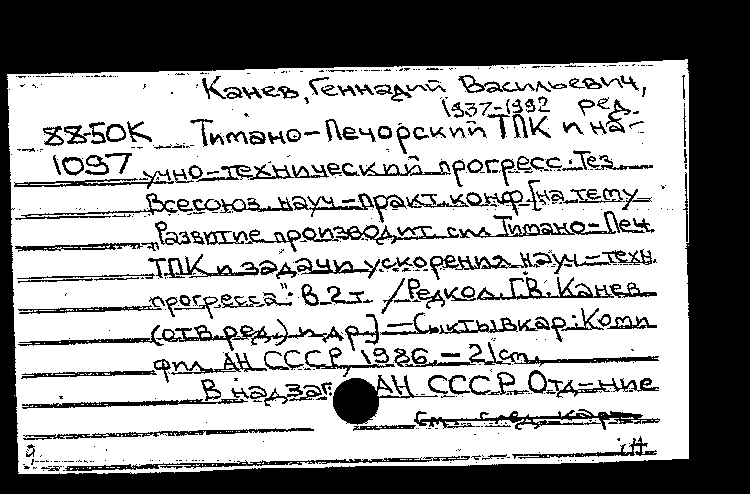 Канев, Геннадий Васильевич,
1937-1992 ред.
88-50К Тимано-Печорский ТПК и на-
1097 учно-технический прогресс: Тез.
Всесоюз. науч.-практ. конф. [на тему
"Развитие производит. сил Тимано-Печ.
ТПК и задачи ускорения науч.-техн.
прогресса": В 2 т. / Редкол. Г.В. Канев
(отв. ред.) и др.] - Сыктывкар: Коми
фил. АН СССР, 1986. - 21 см.
В надзаг. АН СССР. Отд-ние
см. след. кар